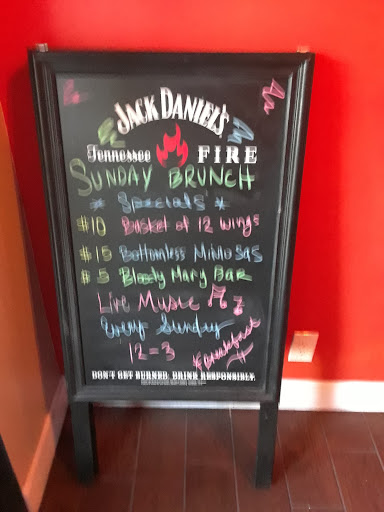 JACK DANIEL'S
Tennessee FIRE
SUNDAY BRUNCH
* Specials *
$10 Basket of 12 wings
$15 Bottomless Mimosas
$5 Bloody Mary Bar
Live Music
Every Sunday
12-3
DON'T GET BURNED. DRINK RESPONSIBLY.